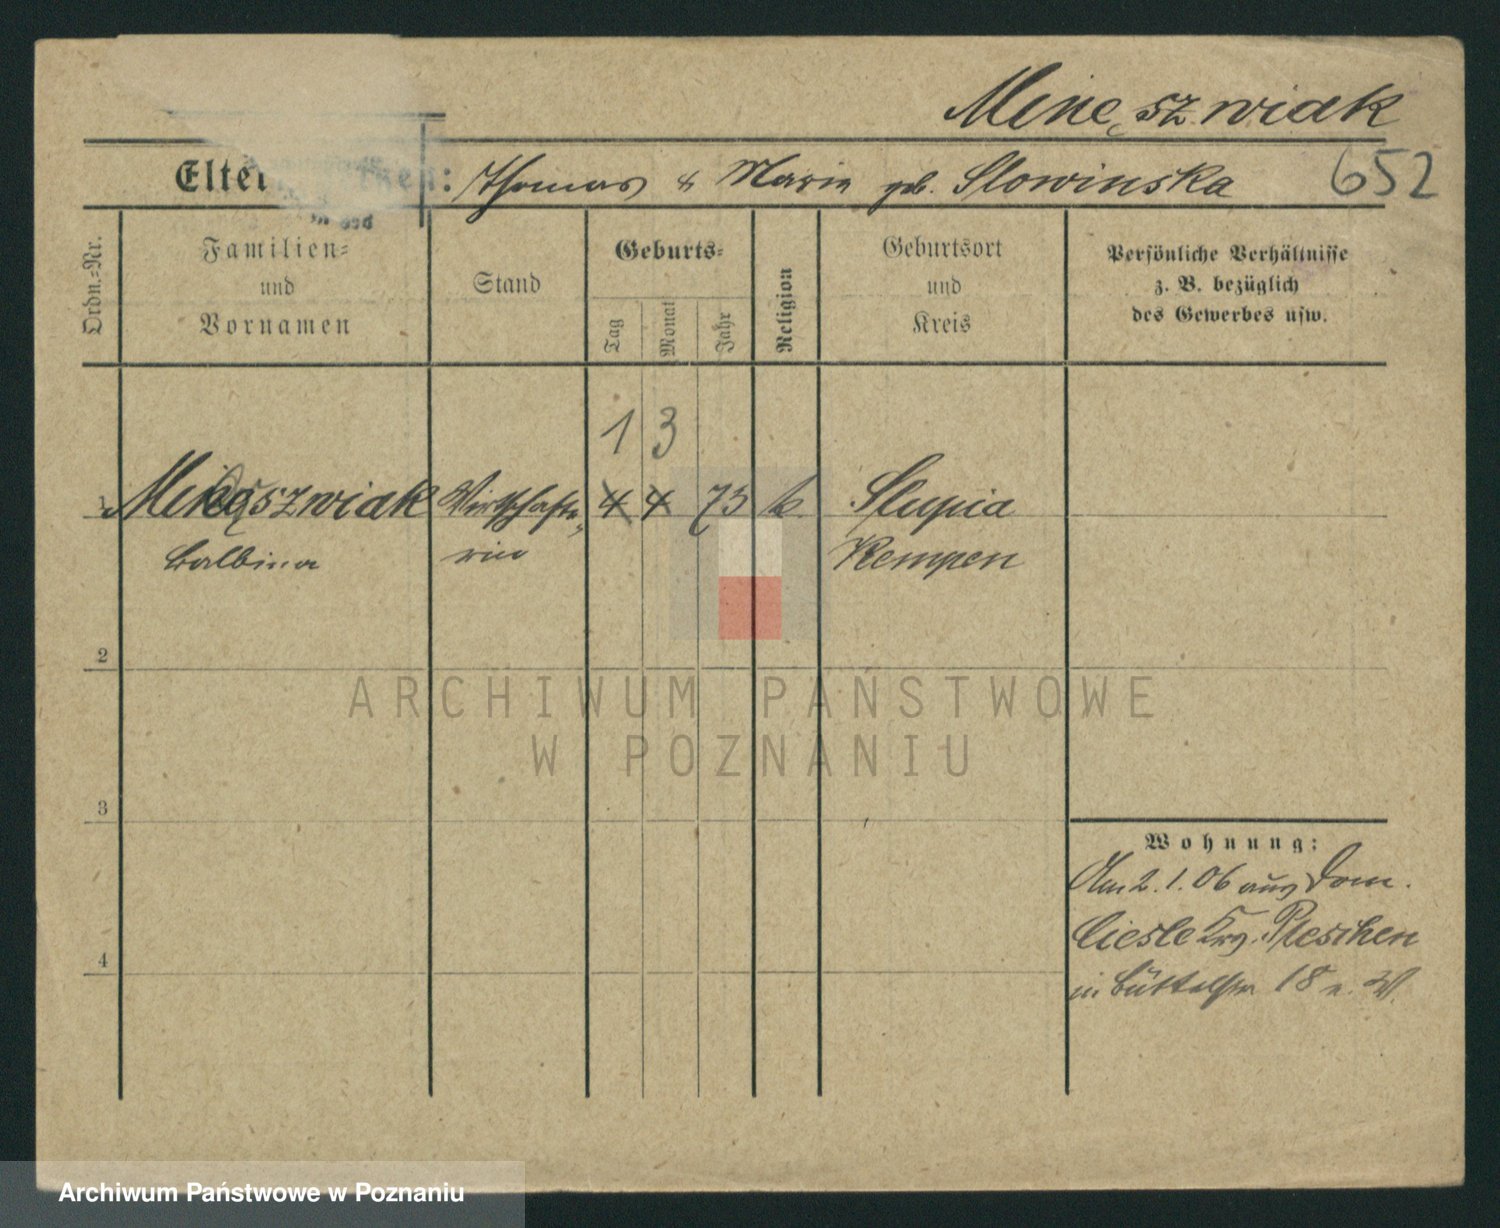 Mine,szwiak
652
Elte :
Thomas & Marie geb. Slowinska
Ordn.=Nr.
Familien=
und
Vornamen
Stand
Geburts=
Tag
Monat
Jahr
Religion
Geburtsort
und
Kreis
Persönliche Verhältnisse
z. B. bezüglich
des Gewerbes usw.
1 3
1 szwiak Wirthschafte= 4 4 73 k. Slupia
Balbina rin Kempen
2
3
4
Wohnung:
Am 2.1.06 aus Dom.
Ciesle Krs. Pleschen
in Büttelstr 18 n. W.
ARCHIWUM PAŃSTWOWE
W POZNANIU
Archiwum Państwowe w Poznaniu